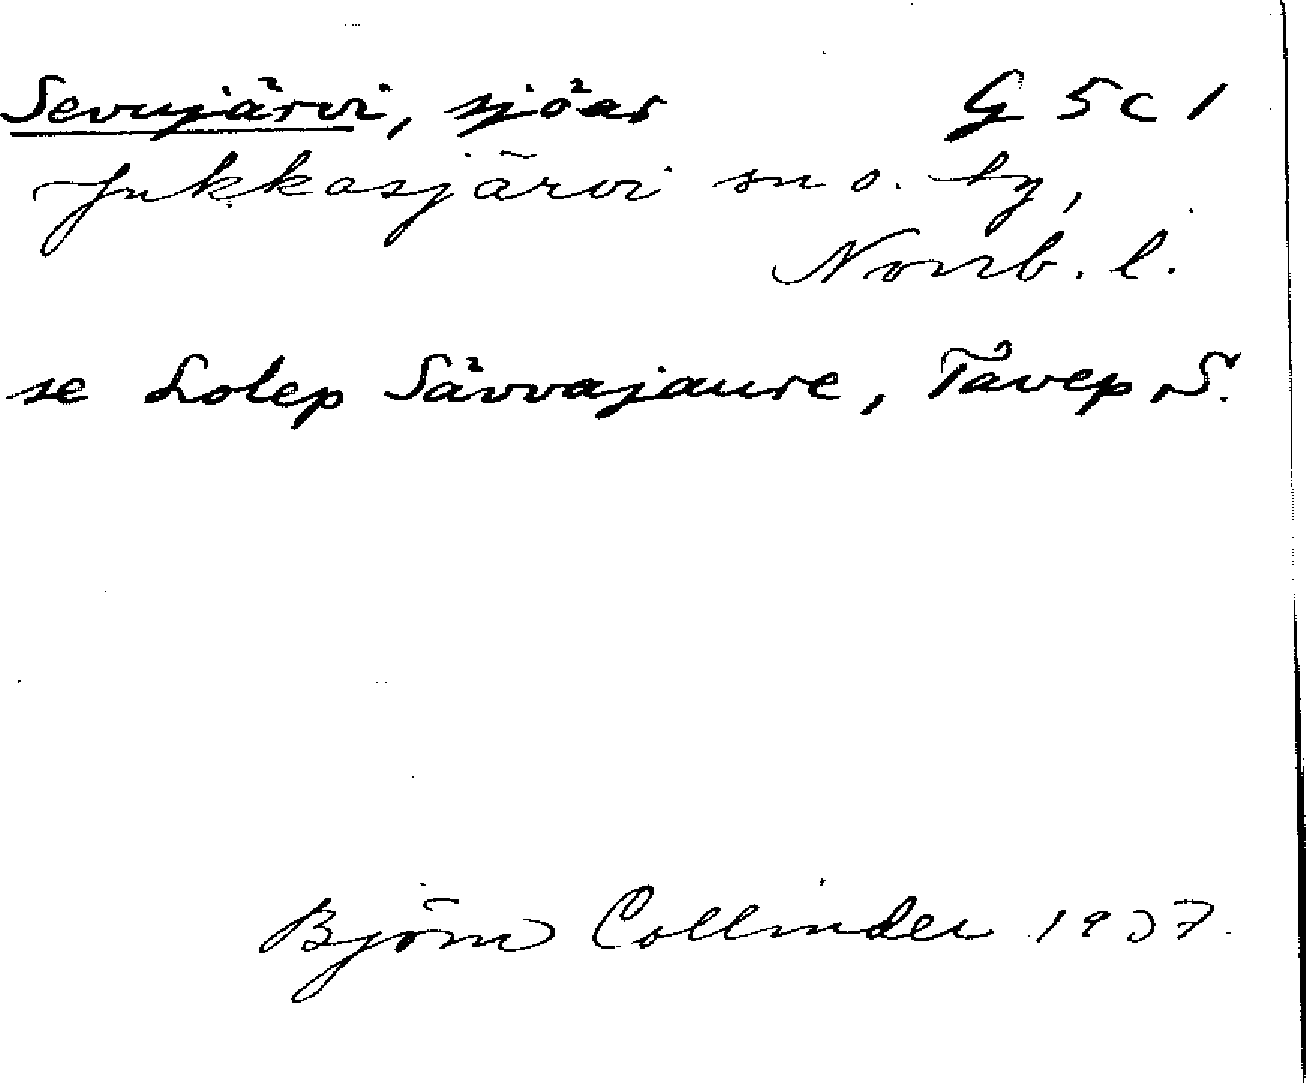 Sevujärvi, sjöar G 5 c 1
Jukkasjärvi sn o. by,
Norrb. l.
se Lolep Sävvajaure, Tåvep S.
Björn Collinder 1937.